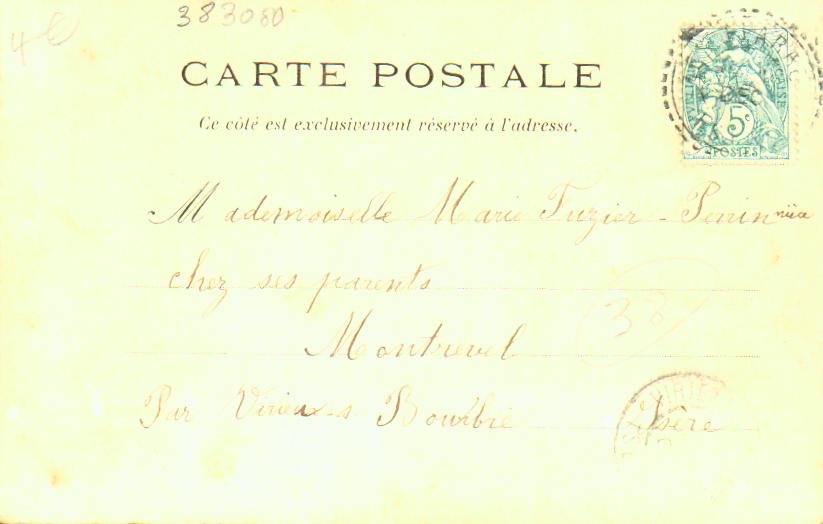 383080
4€
CARTE POSTALE
Ce côté est exclusivement réservé à l'adresse.
5c
POSTES
Mademoiselle Marie Tuzier - Perrin
chez ses parents
38
Montrevel
Par Virieu-s Bourbre Isère
VIRIEU